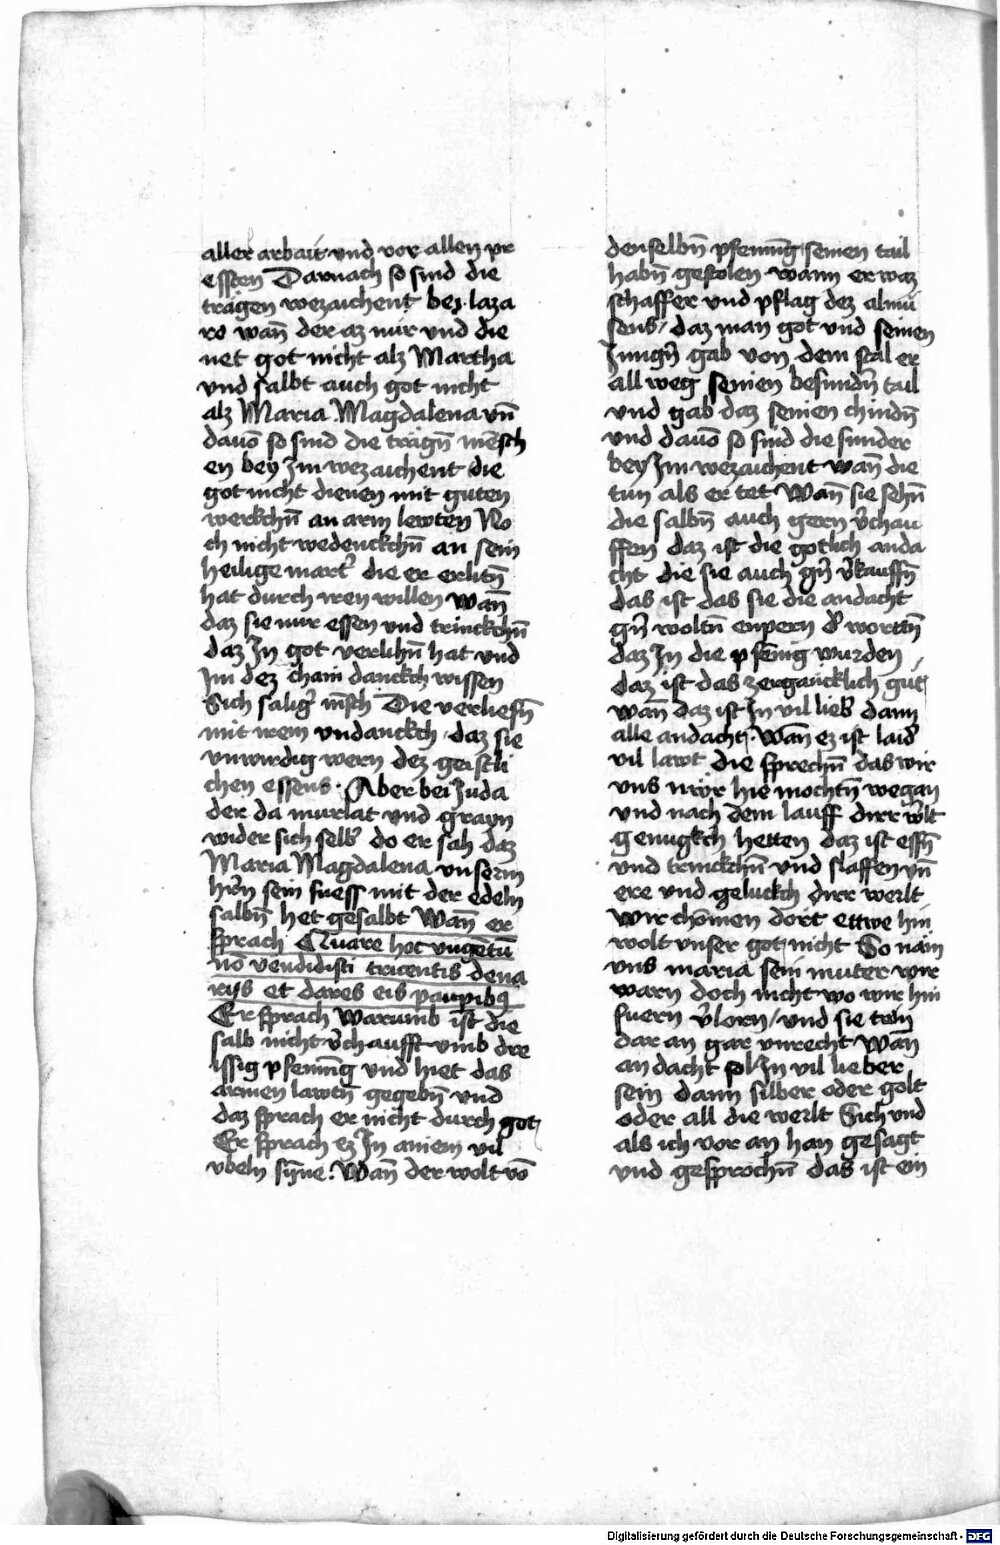 aller arbait und vor allen pr
essten Darnach so sind die
trägen wezaichent bej laza
ro wañ der az nür und die
net got nicht alz Martha
vnd salbt auch got nicht
alz Maria Magdalena vñ
dauō so sind die trägñ mēsch
en bey Im wezaichent die
got nicht dienen mit guten
werkchñ an arm lewten No
ch nicht wedenckchñ an sein
heilige mart' die er erlitñ
hat durch iren willen wañ
daz sie nur essen und trinckchñ
daz In got verlihñ hat und
Im dez chain danckch wissen
Sich salig' mēsch Die verliesñ
mit irem undanckch daz sie
unwirdig wern dez geistli
chen essens. Aber bei Juda
der da murlat und grayn
wider sich selb' do er sah daz
Maria Magdalena unserm
h'rn sein fuess mit der edeln
salbñ het gesalbt Wañ er
sprach Quare hoc vngētū
nō vendidisti tricentis dena
rijs et dares eis paupibꝫ
Er sprach Warumb ist die
salb nicht v'chaufft umb dre
issig pfenning und hiet das
armen lawtñ gegebñ und
daz sprach er nicht durch got
Er sprach ez In ainem vil
vbeln sÿne. Wañ der wolt vō
denselbñ pfenning seinen tail
habñ gestolen wann er waz
schaffer und pflag dez almu
sens / daz man got und seinen
Jungñ gab von dem stal er
all weg seinen besundñ tail
und gab daz seinen chindñ
und dauō so sind die sunder
bey Im wezaichent wañ die
tun als er tet Wañ sie sehñ
die salbñ auch gern v'chau
ffen daz ist die gotlich anda
cht die sie auch g'n v'kauffñ
das ist das sie die andacht
g'n woltñ enpern d' wortñ
daz In die pfenig wurden
daz ist das zergäncklich gut
wañ daz ist In vil lieb' dann
alle andacht. Wañ ez ist laid'
vil lawt die sprechñ das wir
uns nwr hie mochtñ wegan
und nach dem lauff dirr w'lt
genugkch hetten daz ist essñ
und trinckchñ und slaffen vñ
ere und geluckch dirr werlt
wir chömen dort ettwe hin
wolt unser got nicht So näm
uns maria sein muter wir
warn doch nicht wo wir hin
fuern v'lorn / und sie tun
dar an gar unrecht Wañ
andacht sol In vil lieber
sein dann silber oder golt
oder all die werlt Sich und
als ich vor an han gesagt
und gesprochñ das ist ein
Digitalisierung gefördert durch die Deutsche Forschungsgemeinschaft - DFG